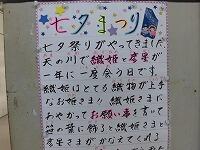 七夕まつり
七夕祭りがやってきました
天の川で織姫と彦星が
一年に一度会う日です
織姫はとても織物が上手
なお姫さま! 織姫さまに
あやかってお願い事を書いて
笹の葉に飾ると織姫さまと
彦星さまがかなえてくれる